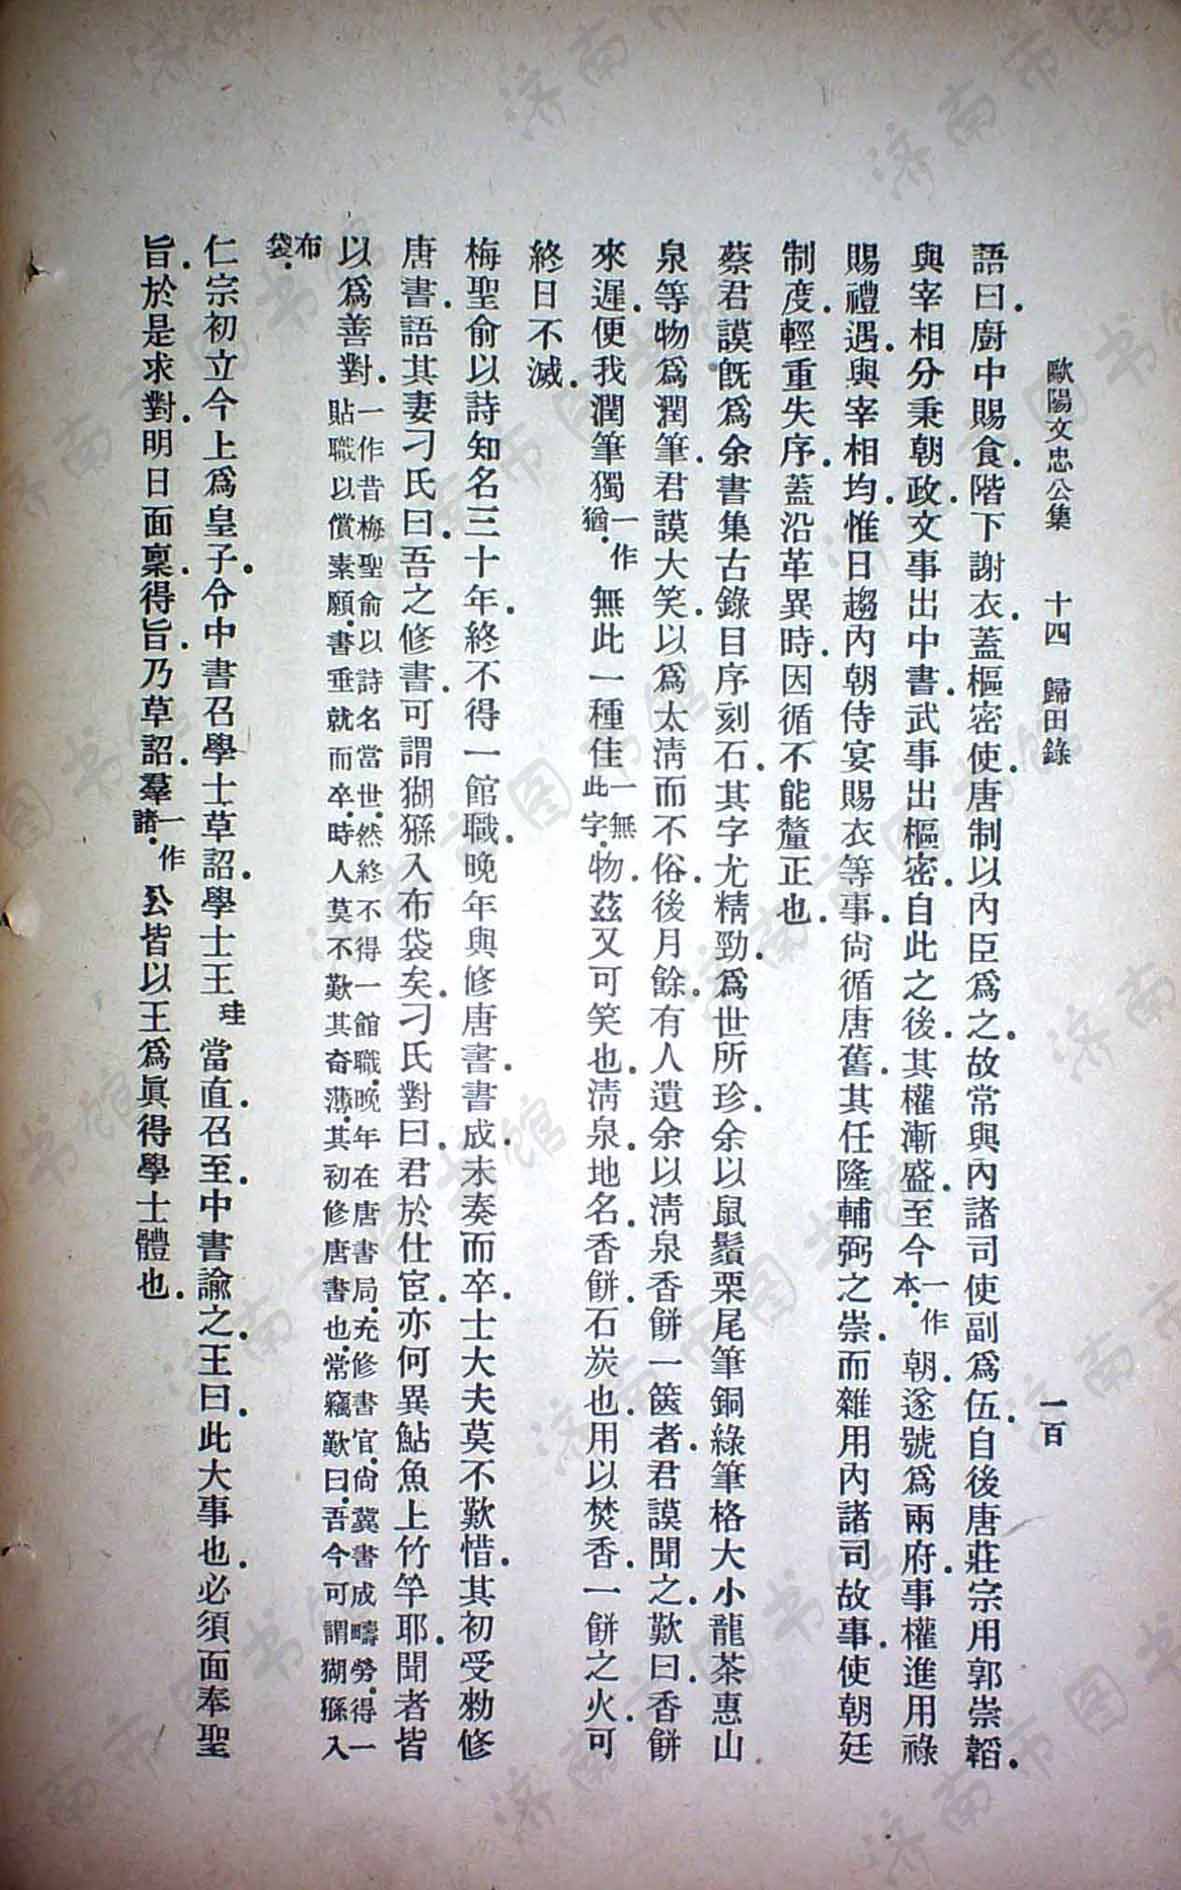 歐陽文忠公集　十四　歸田錄　一百
語曰．廚中賜食．階下謝衣．蓋樞密使．唐制以內臣爲之．故常與內諸司使副爲伍．自後唐莊宗用郭崇韜．
與宰相分秉朝政．文事出中書．武事出樞密．自此之後．其權漸盛．至今一作本．朝．遂號爲兩府．事權進用祿
賜禮遇．與宰相均．惟日趨內朝侍宴賜衣等事．尙循唐舊．其任隆輔弼之崇．而雜用內諸司故事．使朝廷
制度．輕重失序．蓋沿革異時．因循不能釐正也．
蔡君謨旣爲余書集古錄目序刻石．其字尤精勁．爲世所珍．余以鼠鬚栗尾筆銅綠筆格大小龍茶惠山
泉等物爲潤筆．君謨大笑．以爲太淸而不俗．後月餘．有人遺余以淸泉香餅一篋者．君謨聞之．歎曰．香餅
來遲．便我潤筆獨一作猶．無此一種佳一無此字．物．茲又可笑也．淸泉．地名．香餅．石炭也．用以焚香．一餅之火．可
終日不滅．
梅聖俞以詩知名三十年．終不得一館職．晚年與修唐書．書成．未奏而卒．士大夫莫不歎惜．其初受勑修
唐書．語其妻刁氏曰．吾之修書．可謂猢猻入布袋矣．刁氏對曰．君於仕宦．亦何異鮎魚上竹竿耶．聞者皆
以爲善對．一作昔梅聖俞以詩名當世．然終不得一館職．晚年在唐書局．充修書官．尙冀書成疇勞．得一
貼職以償素願．書垂就而卒．時人莫不歎其奇薄．其初修唐書也．常竊歎曰．吾今可謂猢猻入
布袋．
仁宗初立今上爲皇子．令中書召學士草詔．學士王珪當直．召至．中書諭之．王曰．此大事也．必須面奉聖
旨．於是求對．明日面稟．得旨．乃草詔．羣一作諸．公皆以王爲眞得學士體也．
济南市图书馆